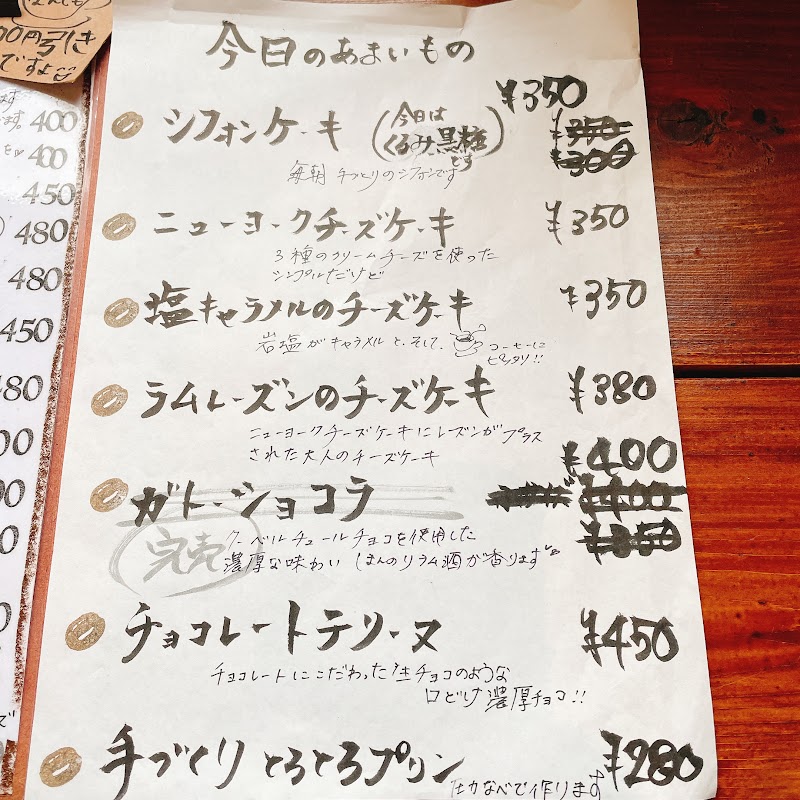 0円引き
ですよ
400
400
450
480
480
450
今日のあまいもの
シフォンケーキ (今日は くるみ黒糖 です) ¥350
毎朝 手づくりのシフォンです
ニューヨークチーズケーキ ¥350
3種のクリームチーズを使った
シンプルだけど
塩キャラメルのチーズケーキ ¥350
岩塩がキャラメルと、そして、コーヒーに
ピッタリ!!
ラムレーズンのチーズケーキ ¥380
ニューヨークチーズケーキにレーズンがプラス
された大人のチーズケーキ
ガトーショコラ ¥400
完売
クーベルチュールチョコを使用した
濃厚な味わい ほんのりラム酒が香ります
チョコレートテリーヌ ¥450
チョコレートにこだわった生チョコのような
口どけ濃厚チョコ!!
手づくりとろとろプリン ¥280
なべで作ります